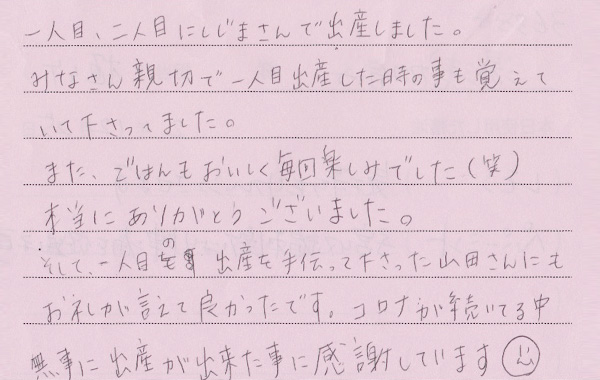 一人目、二人目にしじまさんで出産しました。
みなさん親切で一人目出産した時の事も覚えて
いて下さってました。
また、ごはんもおいしく毎回楽しみでした(笑)
本当にありがとうございました。
そして、一人目の出産を手伝って下さった山田さんにも
お礼が言えて良かったです。コロナが続いてる中
無事に出産が出来た事に感謝しています